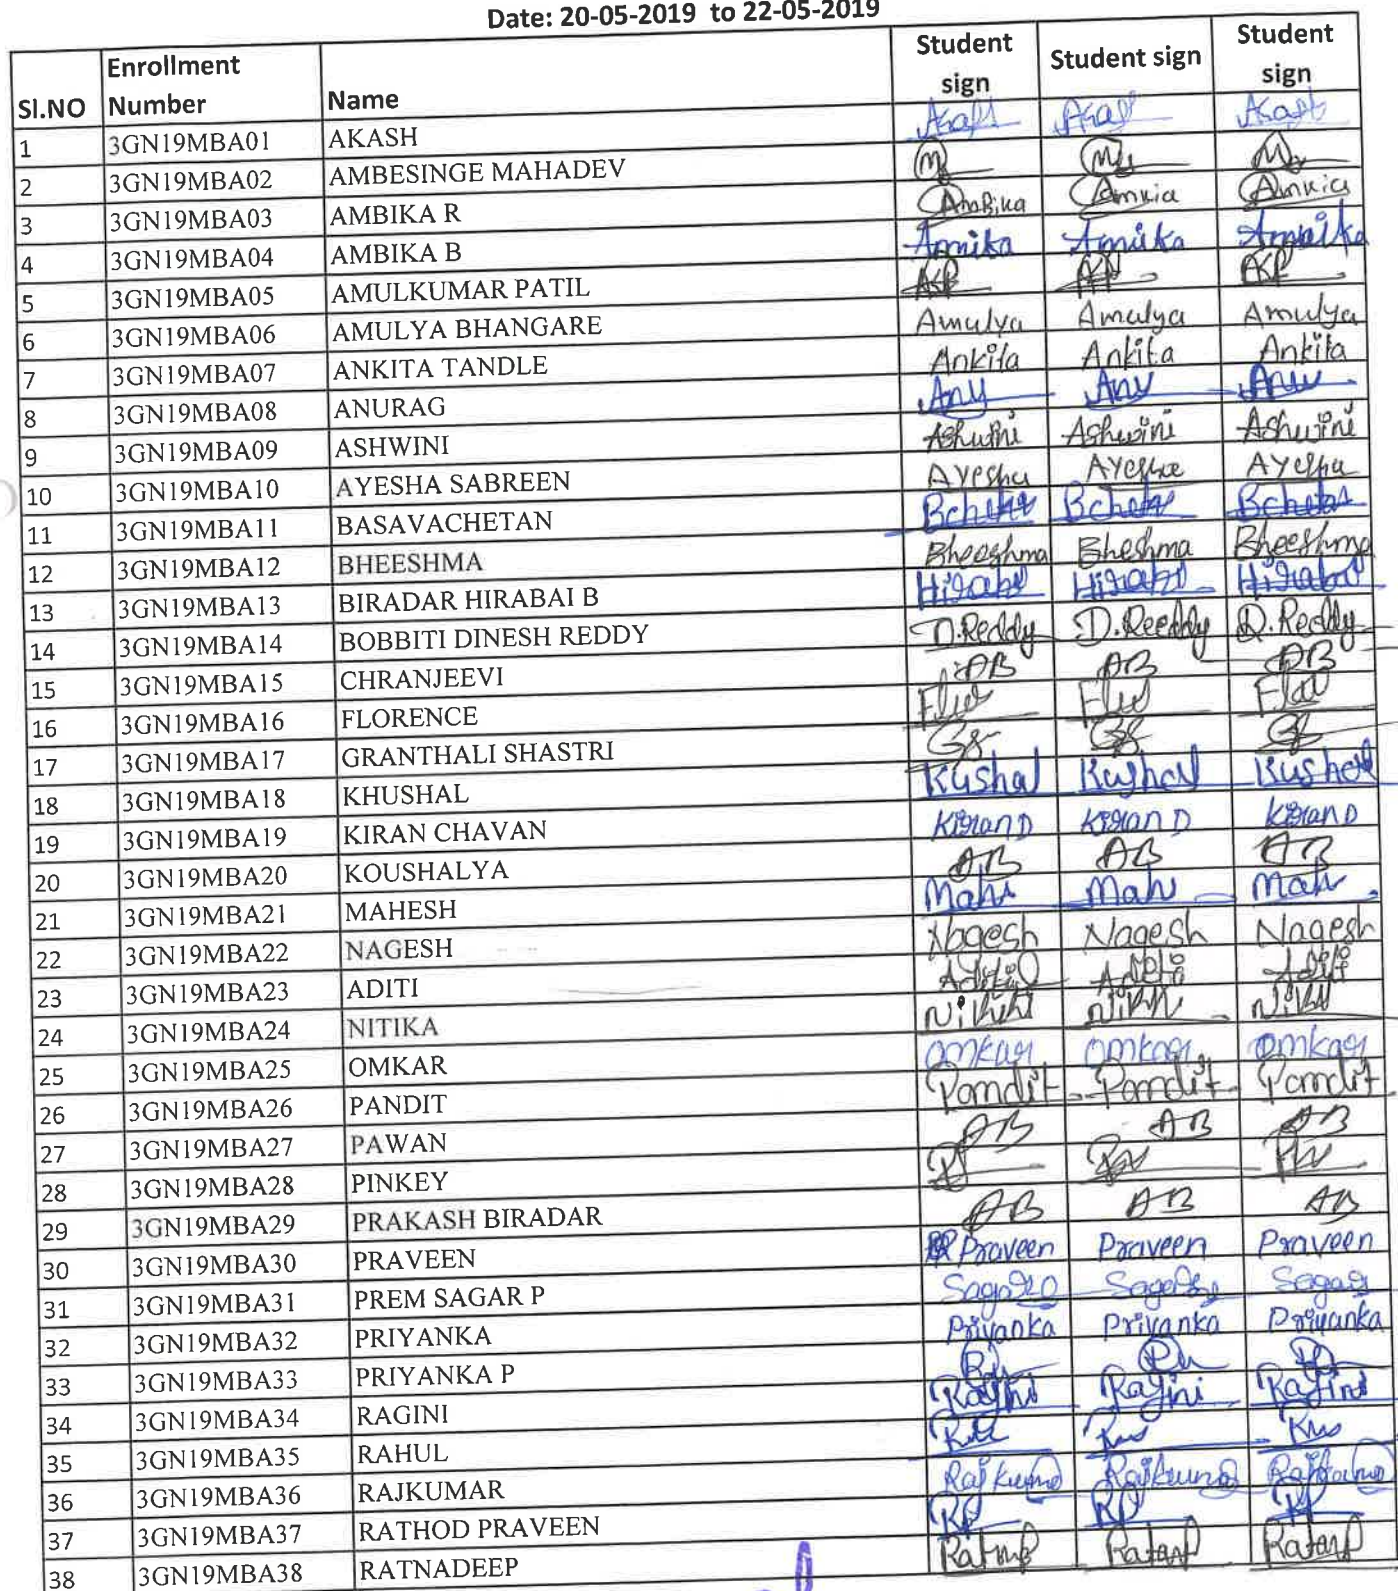 Date: 20-05-2019 to 22-05-2019
Sl.NO Enrollment Number Name Student sign Student sign Student sign
1 3GN19MBA01 AKASH Akash Akash Akash
2 3GN19MBA02 AMBESINGE MAHADEV
3 3GN19MBA03 AMBIKA R Ambika
4 3GN19MBA04 AMBIKA B
5 3GN19MBA05 AMULKUMAR PATIL
6 3GN19MBA06 AMULYA BHANGARE Amulya Amulya Amulya
7 3GN19MBA07 ANKITA TANDLE Ankita Ankita Ankita
8 3GN19MBA08 ANURAG
9 3GN19MBA09 ASHWINI Ashwini Ashwini Ashwini
10 3GN19MBA10 AYESHA SABREEN Ayesha Ayesha Ayesha
11 3GN19MBA11 BASAVACHETAN
12 3GN19MBA12 BHEESHMA Bheeshma Bheshma Bheeshma
13 3GN19MBA13 BIRADAR HIRABAI B
14 3GN19MBA14 BOBBITI DINESH REDDY D.Reddy D.Reddy D.Reddy
15 3GN19MBA15 CHRANJEEVI AB AB AB
16 3GN19MBA16 FLORENCE
17 3GN19MBA17 GRANTHALI SHASTRI
18 3GN19MBA18 KHUSHAL Kushal Kushal Kushal
19 3GN19MBA19 KIRAN CHAVAN Kiran D Kiran D Kiran D
20 3GN19MBA20 KOUSHALYA AB AB AB
21 3GN19MBA21 MAHESH
22 3GN19MBA22 NAGESH Nagesh Nagesh Nagesh
23 3GN19MBA23 ADITI Aditi Aditi Aditi
24 3GN19MBA24 NITIKA
25 3GN19MBA25 OMKAR Omkar Omkar Omkar
26 3GN19MBA26 PANDIT Pandit Pandit Pandit
27 3GN19MBA27 PAWAN AB AB AB
28 3GN19MBA28 PINKEY
29 3GN19MBA29 PRAKASH BIRADAR AB AB AB
30 3GN19MBA30 PRAVEEN Praveen Praveen Praveen
31 3GN19MBA31 PREM SAGAR P Sagar
32 3GN19MBA32 PRIYANKA Priyanka Priyanka Priyanka
33 3GN19MBA33 PRIYANKA P
34 3GN19MBA34 RAGINI Ragini Ragini Ragini
35 3GN19MBA35 RAHUL
36 3GN19MBA36 RAJKUMAR Rajkumar Rajkumar Rajkumar
37 3GN19MBA37 RATHOD PRAVEEN RP RP RP
38 3GN19MBA38 RATNADEEP